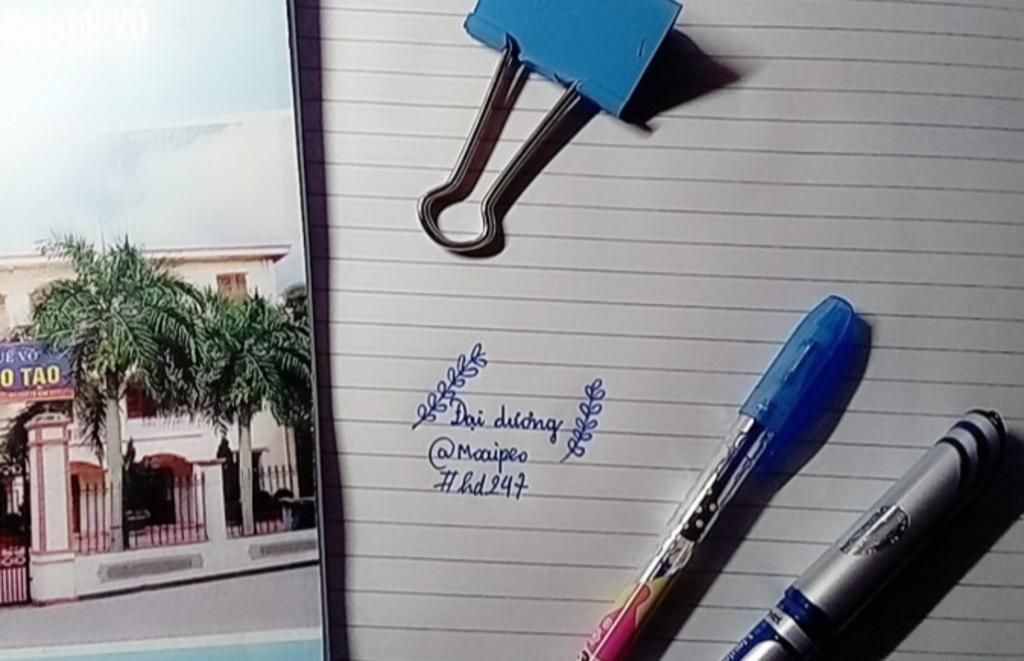 UẾ VÕ
O TẠO
Dại dương
@Mocipeo
#hd247